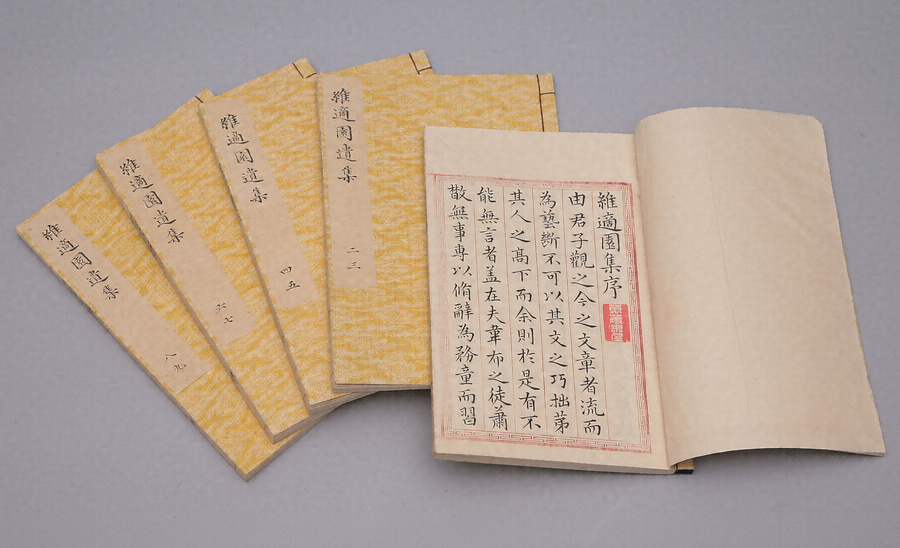 維適園集序
由君子觀之今之文章者流而
為藝斷不可以其文之巧拙苐
其人之髙下而余則於是有不
能無言者盖在夫韋布之徒蕭
散無事專以脩辭為務童而習
維適園遺集
二三
維適園遺集
四五
維適園遺集
六七
維適園遺集
八九